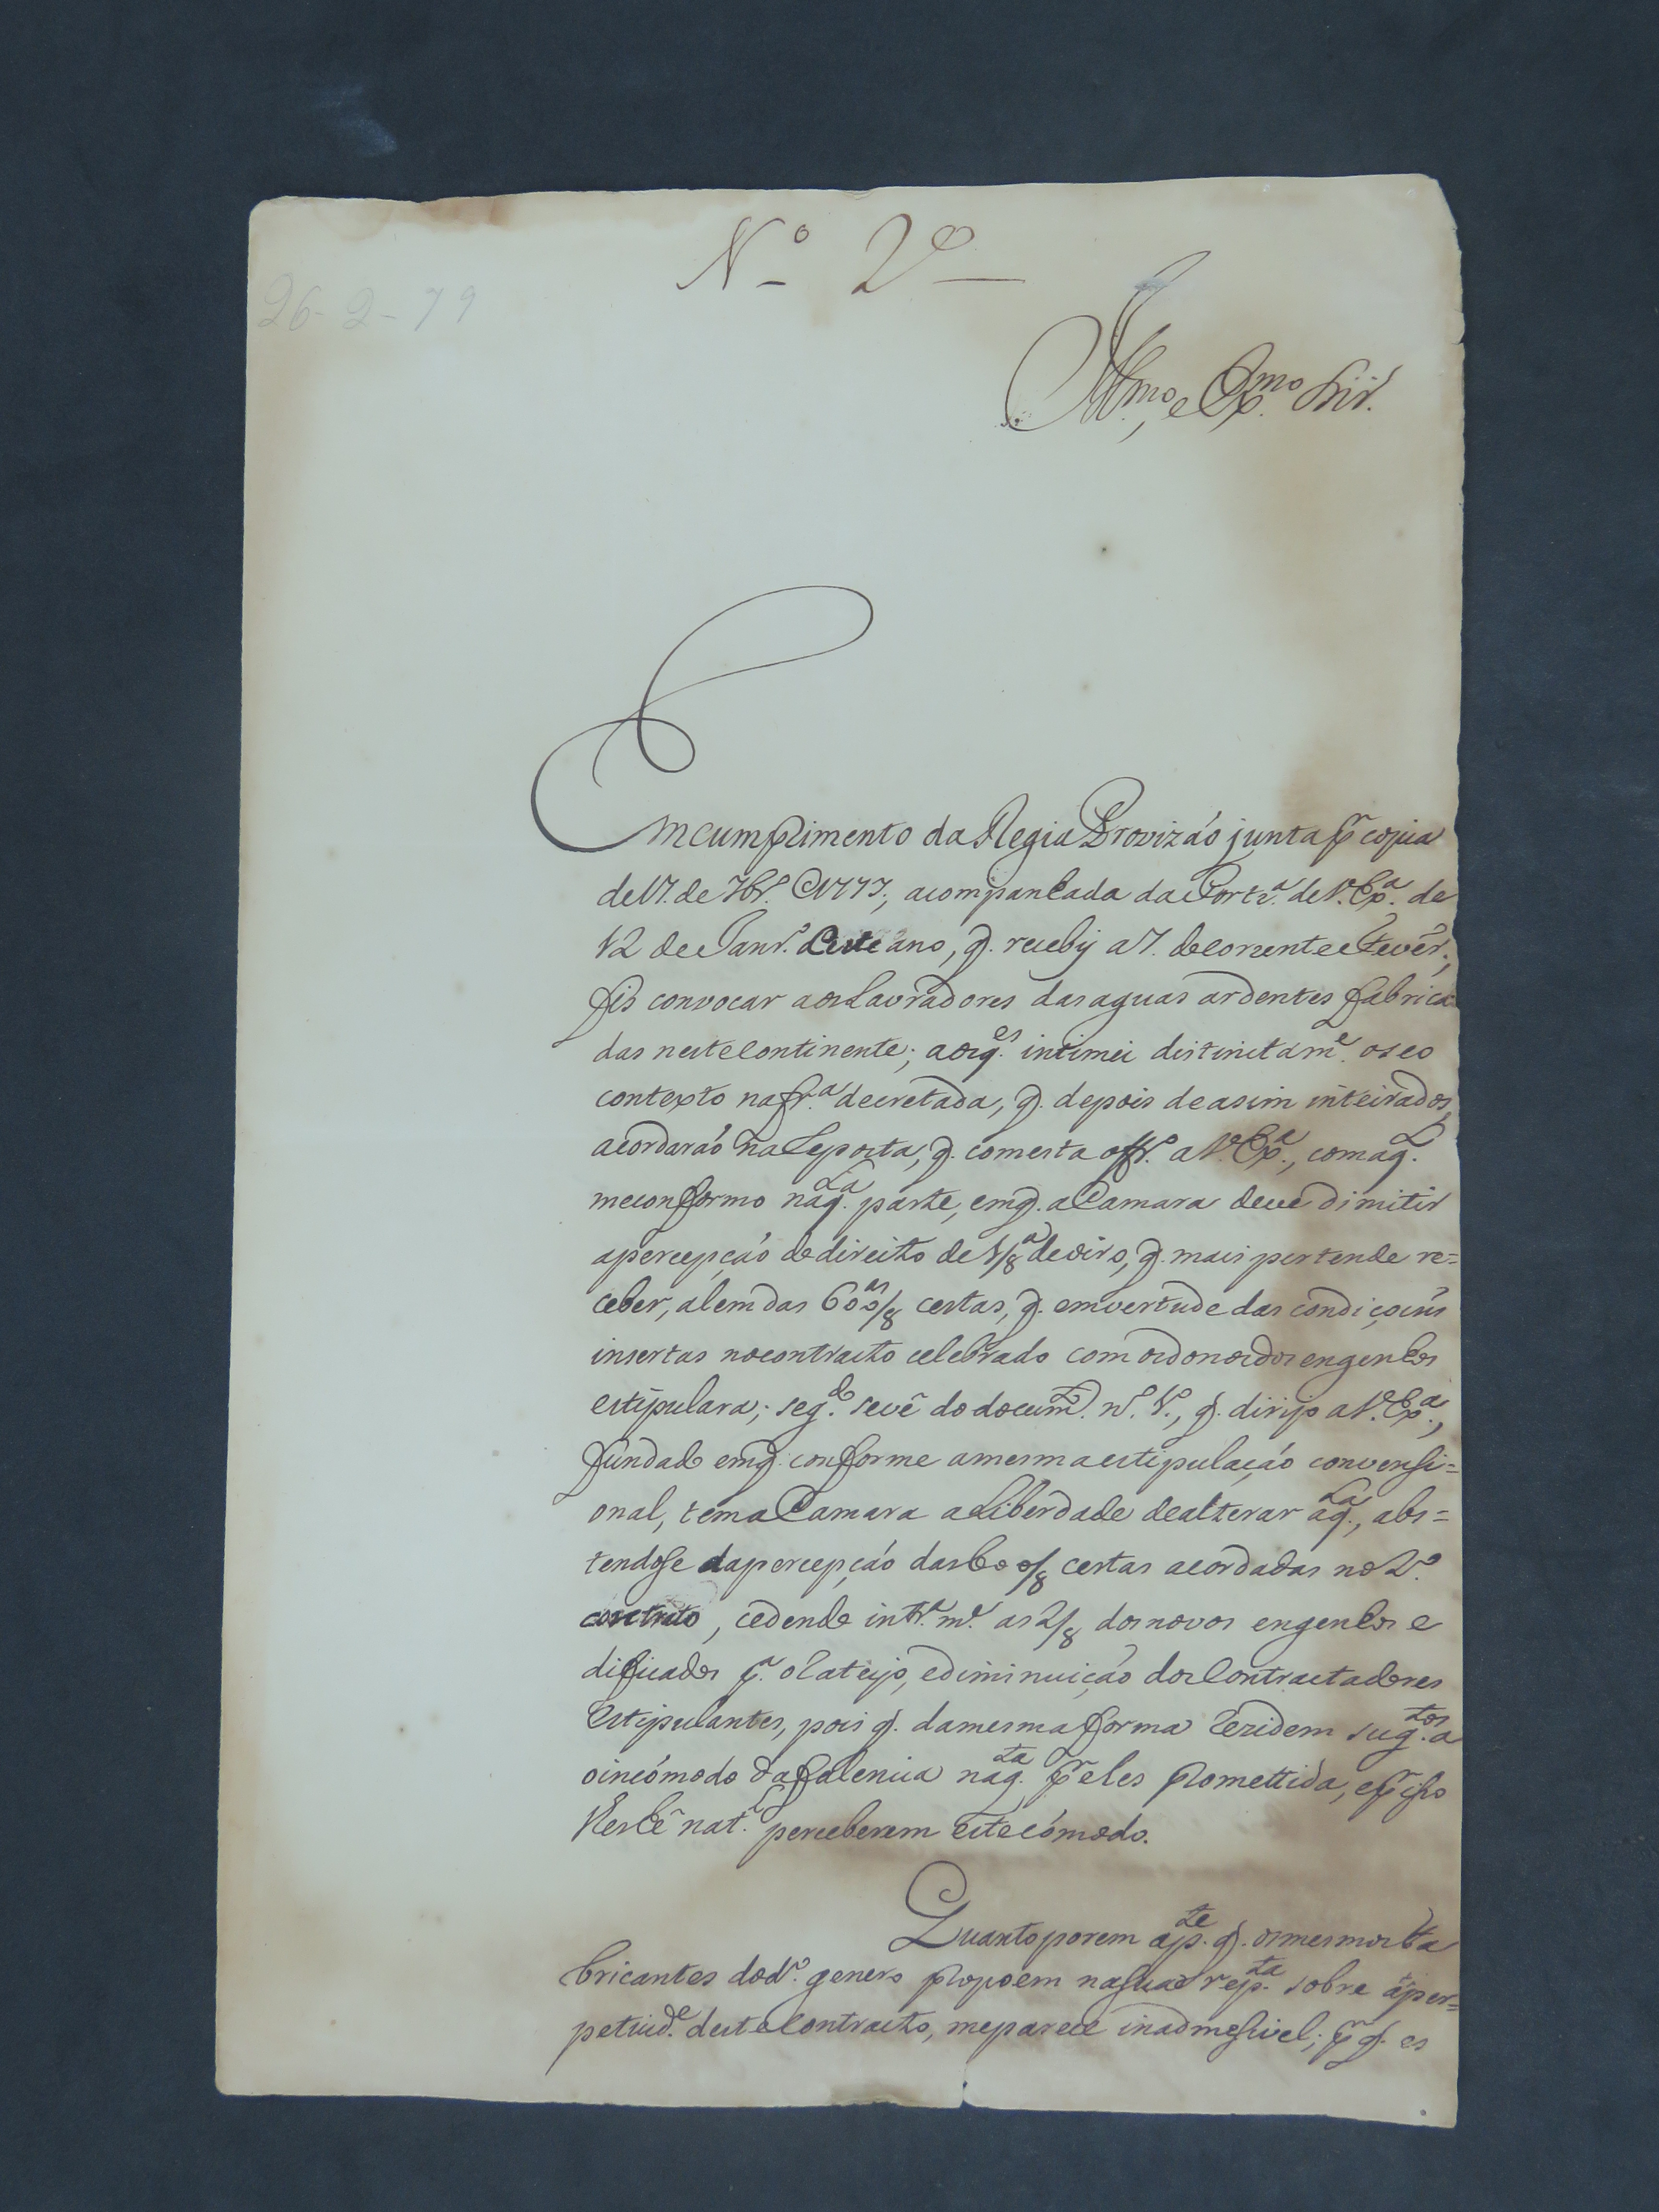 Nº 2º
26-2-79
Illmo., e Exmo. Snr.
Em cumprimento da Regia Provizaó junta pr copia
de 17. de 7br.º 1777; acompanhada da Portr.ª de V. Exª. de
12 de Janr.º deste ano, q. recebij a 7. do corrente Fever.º,
fis convocar aos Lavradores das aguas ardentes fabrica
das neste Continente; aos q.es intimei distinctam.e o seo
contexto na fr.ª decretada, q. depois de asim inteirados,
acordaraó na Reposta, q. com esta offr.º a V. Exª., com a q.l
me conformo naq.la parte, em q. a Camara deve dimitir
a percepçaó do direito de 1/8.ª de oiro, q. mais pertende re=
ceber, alem das 600/8.as certas, q. em vertude das condiçoens
insertas no contracto celebrado com os donos dos engenhos
estipulara; seg.do se vê do docum.to n.º 1.º, q. dirijo a V. Exª.,
fundado em q. conforme a mesma estipulaçaó convensi=
onal, tem a Camara a Liberdade de alterar aq.la, abs=
tendose da percepçaó das 600/8 certas acordadas no 2.º
contrato, cedendo intr.ª m.e as 2/8 dos novos engenhos e
dificados p.ª o rateijo, e diminuiçaó dos Contractadores
Estipulantes, pois q. da mesma forma rezidem sug.tos a
o incómodo da falencia naq.ta pr eles promettida, e pr iso
Nes hê nat.l perceberem este cómodo.
Quanto porem a p.te q. os mesmos fa
bricantes do d.º genero propoem na sua rep.ta sobre a per=
petuid.e deste Contracto, me parece inadmesivel; pr q. es